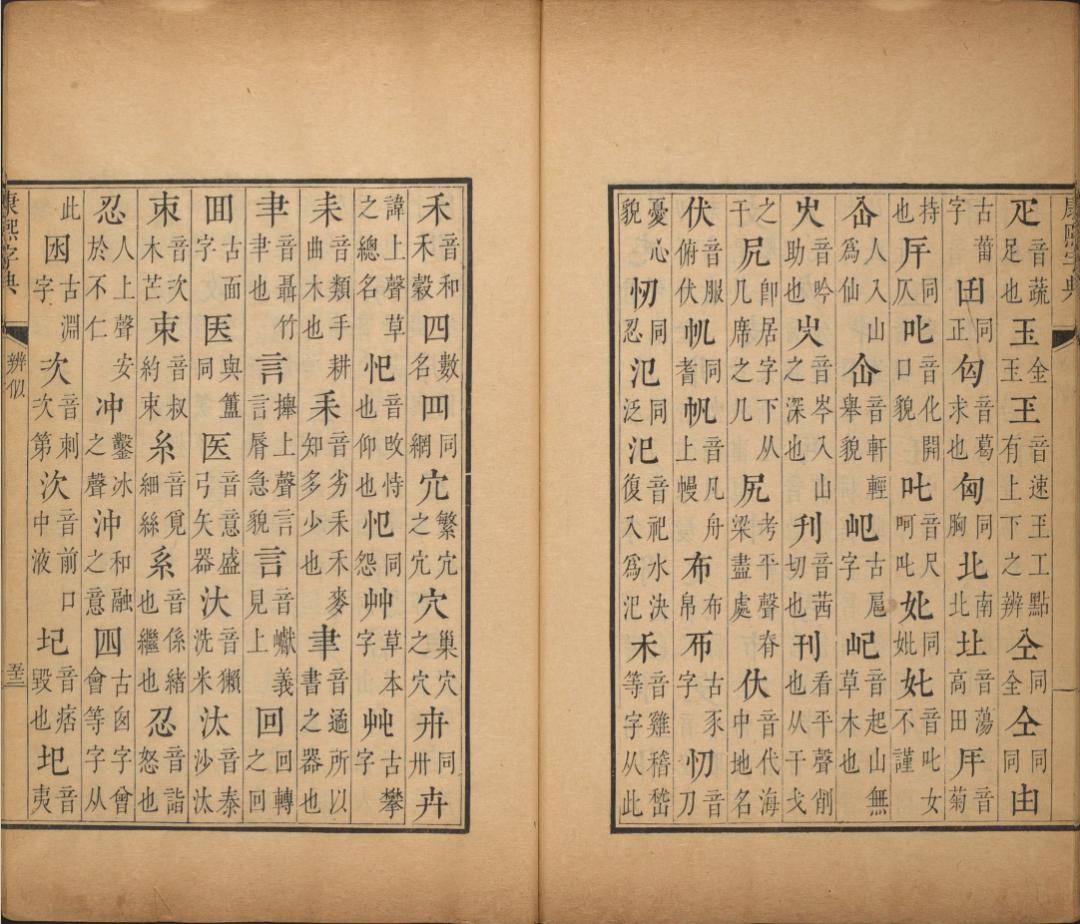 康熙字典
疋音蔬足也玉金玉玊音速玉工點有上下之辨仝同全仝同同由
古蕾字田同正匃音葛求也匈同胸北南北圵音蕩高田𠂬音菊
持也㕂同仄𠤎音化開口貌叱音尺呵叱妣同妣㚲音叱女不謹
仚人入山為仙仚音軒輕舉貌㞾古巵字屺音起山無草木也
㕚音吟助也㞤音岑入山之深也刌音茜切也刊音看平聲削也从干戈
之干凥即居字下从几席之几尻考平聲脊梁盡處㐲音代海中地名
伏音服俯伏㠶同耆帆音凡舟上幔布布帛𢁉古豕字忉音刀
憂心貌㣼同忍氾同泛汜音祀水決復入為汜禾音雞稽嵇等字从此
禾音和禾穀四數名罒同網冗繁冗之冗穴巢穴之穴卅同卌卉
諱上聲草之總名㤅音攺恃也仰也㤪同怨艸草本字𠬜古攀字
耒音類手耕曲木也耒音劣禾麥知多少也聿音遹所以書之器也
𦘒音聶竹聿也言攑上聲言言脣急貌言音巘義見上回回轉之回
囬古面字医與簠同医音意盛弓矢器汏音獺洗米汰音泰沙汰
朿音次木芒束音叔約束糸音覓細絲系音係緒也繼也忍音詣怒也
忍人上聲安於不仁冲鑿冰之聲沖和融之意囚古囪字曾會等字从
此囦古淵字次音刺次第㳄音前口中液圮音痞毀也圯音夷
康熙字典 辨似